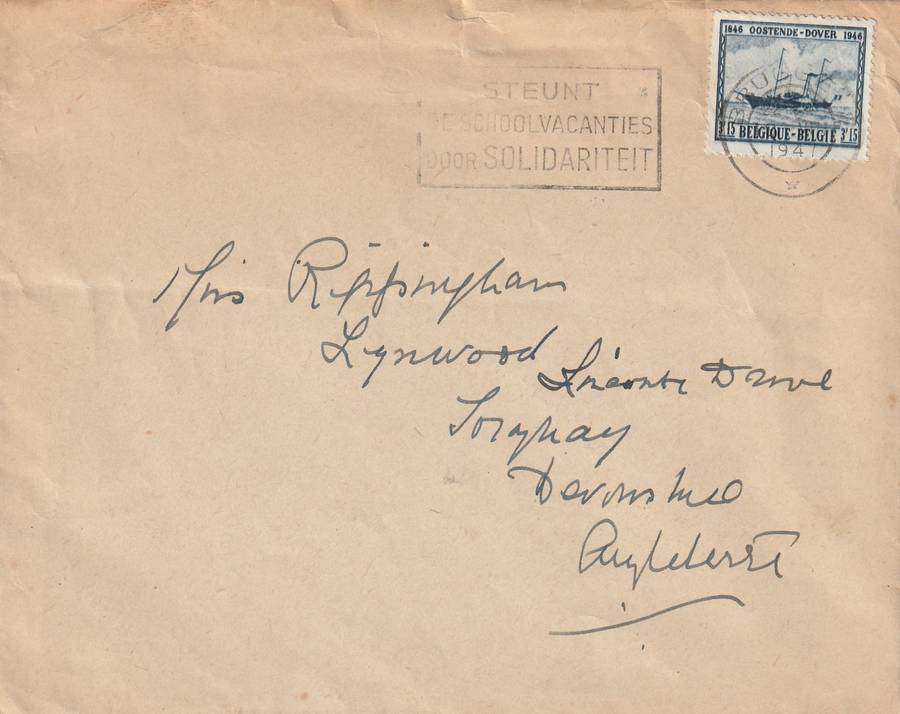 1846 OOSTENDE-DOVER 1946
3F15 BELGIQUE-BELGIE 3F15
BRUSSEL
1947
STEUNT
DE SCHOOLVACANTIES
DOOR SOLIDARITEIT
Miss Rippingham
Lynwood
Drive
Torquay
Devonshire
Angleterre